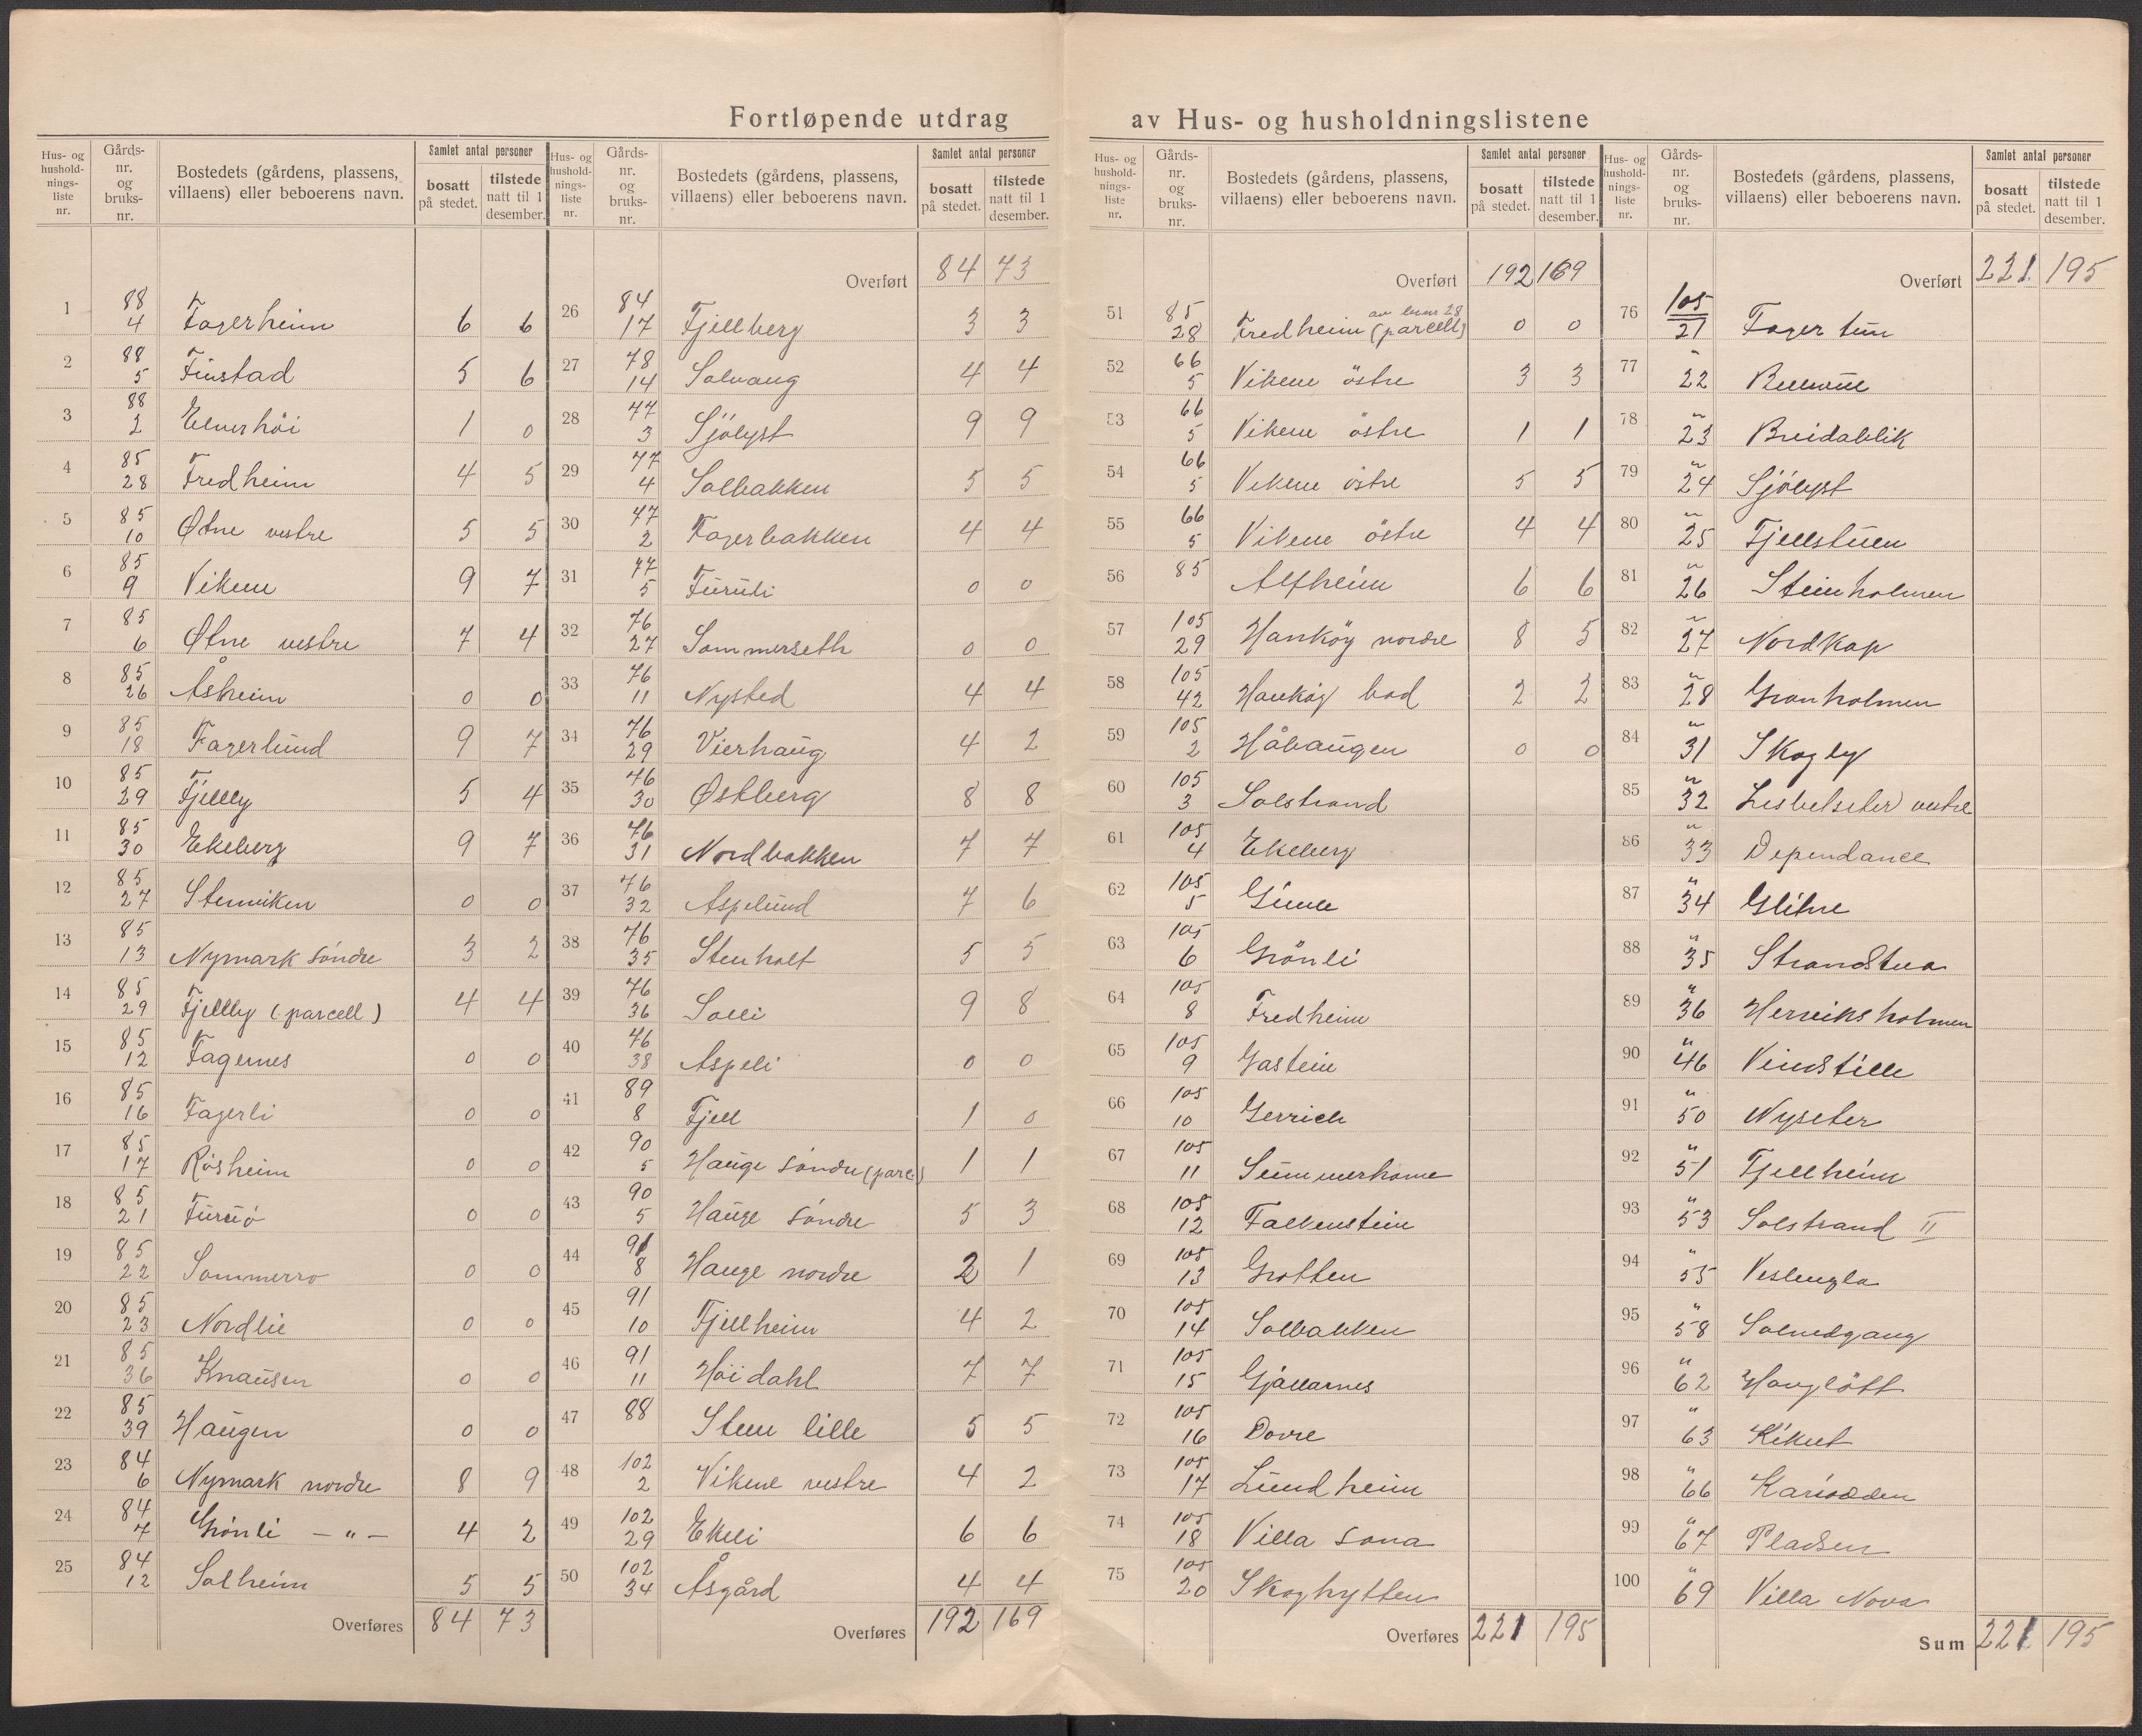 Fortløpende utdrag av Hus- og husholdningslistene
Hus- og hushold-nings-liste nr. Gårds-nr. og bruks-nr. Bostedets (gårdens, plassens, villaens) eller beboerens navn. Samlet antal personer bosatt på stedet. tilstede natt til 1 desember.
1 88 4 Fagerheim 6 6
2 88 5 Finstad 5 6
3 88 2 Elverhöi 1 0
4 85 28 Fredheim 4 5
5 85 10 Øtne vestre 5 5
6 85 9 Vikene 9 7
7 85 6 Øtne vestre 7 4
8 85 26 Åsheim 0 0
9 85 18 Fagerlund 9 7
10 85 29 Fjellly 5 4
11 85 30 Ekeberg 9 7
12 85 27 Stenviken 0 0
13 85 13 Nymark söndre 3 2
14 85 29 Fjellly (parcell) 4 4
15 85 12 Fagernes 0 0
16 85 16 Fagerli 0 0
17 85 17 Rösheim 0 0
18 85 21 Furuö 0 0
19 85 22 Sommerro 0 0
20 85 23 Nordlie 0 0
21 85 36 Knausen 0 0
22 85 39 Haugen 0 0
23 84 6 Nymark nordre 8 9
24 84 7 Grönli - " - 4 2
25 84 12 Solheim 5 5
Overføres 84 73
Hus- og hushold-nings-liste nr. Gårds-nr. og bruks-nr. Bostedets (gårdens, plassens, villaens) eller beboerens navn. Samlet antal personer bosatt på stedet. tilstede natt til 1 desember.
Overført 84 73
26 84 17 Fjellberg 3 3
27 78 14 Solvang 4 4
28 77 3 Sjölyst 9 9
29 77 4 Solbakken 5 5
30 77 2 Fagerbakken 4 4
31 77 5 Furuli 0 0
32 76 27 Sommerseth 0 0
33 76 11 Nysted 4 4
34 76 29 Vierhaug 4 2
35 76 30 Østberg 8 8
36 76 31 Nordbakken 7 7
37 76 32 Aspelund 7 6
38 76 35 Stenholt 5 5
39 76 36 Solli 9 8
40 76 38 Aspeli 0 0
41 89 8 Fjell 1 0
42 90 5 Hauge söndre (parc.) 1 1
43 90 5 Hauge söndre 5 3
44 91 8 Hauge nordre 2 1
45 91 10 Fjellheim 4 2
46 91 11 Höidahl 7 7
47 88 Stene lille 5 5
48 102 2 Vikene vestre 4 2
49 102 29 Ekeli 6 6
50 102 34 Åsgård 4 4
Overføres 192 169
Hus- og hushold-nings-liste nr. Gårds-nr. og bruks-nr. Bostedets (gårdens, plassens, villaens) eller beboerens navn. Samlet antal personer bosatt på stedet. tilstede natt til 1 desember.
Overført 192 169
51 85 28 Fredheim (parcell) av brnr 28 0 0
52 66 5 Vikene östre 3 3
53 66 5 Vikene östre 1 1
54 66 5 Vikene östre 5 5
55 66 5 Vikene östre 4 4
56 85 Alfheim 6 6
57 105 29 Hanköy nordre 8 5
58 105 42 Hanköy bad 2 2
59 105 2 Håhaugen 0 0
60 105 3 Solstrand
61 105 4 Ekeberg
62 105 5 Gimle
63 105 6 Grönli
64 105 8 Fredheim
65 105 9 Gastein
66 105 10
67 105 11 Summerhome
68 105 12 Falkenstein
69 105 13 Grotten
70 105 14 Solbakken
71 105 15 Gjallarnes
72 105 16 Dovre
73 105 17 Lundheim
74 105 18 Villa Sana
75 105 20 Skoghytten
Overføres 221 195
Hus- og hushold-nings-liste nr. Gårds-nr. og bruks-nr. Bostedets (gårdens, plassens, villaens) eller beboerens navn. Samlet antal personer bosatt på stedet. tilstede natt til 1 desember.
Overført 221 195
76 105 21 Fagertun
77 " 22
78 " 23 Breidablik
79 " 24 Sjölyst
80 " 25 Fjellstuen
81 " 26 Steinholmen
82 " 27 Nordkap
83 " 28 Granholmen
84 " 31 Skogly
85 " 32 Lisbetseter vestre
86 " 33 Dependance
87 " 34 Glitne
88 " 35 Strandstua
89 " 36 Henriksholmen
90 " 46 Vindstille
91 " 50 Nyseter
92 " 51 Fjellheim
93 " 53 Solstrand II
94 " 55 Veslengla
95 " 58 Solnedgang
96 " 62 Haugtött
97 " 63 Kikut
98 " 66
99 " 67 Pladsen
100 " 69 Villa Nova
Sum 221 195